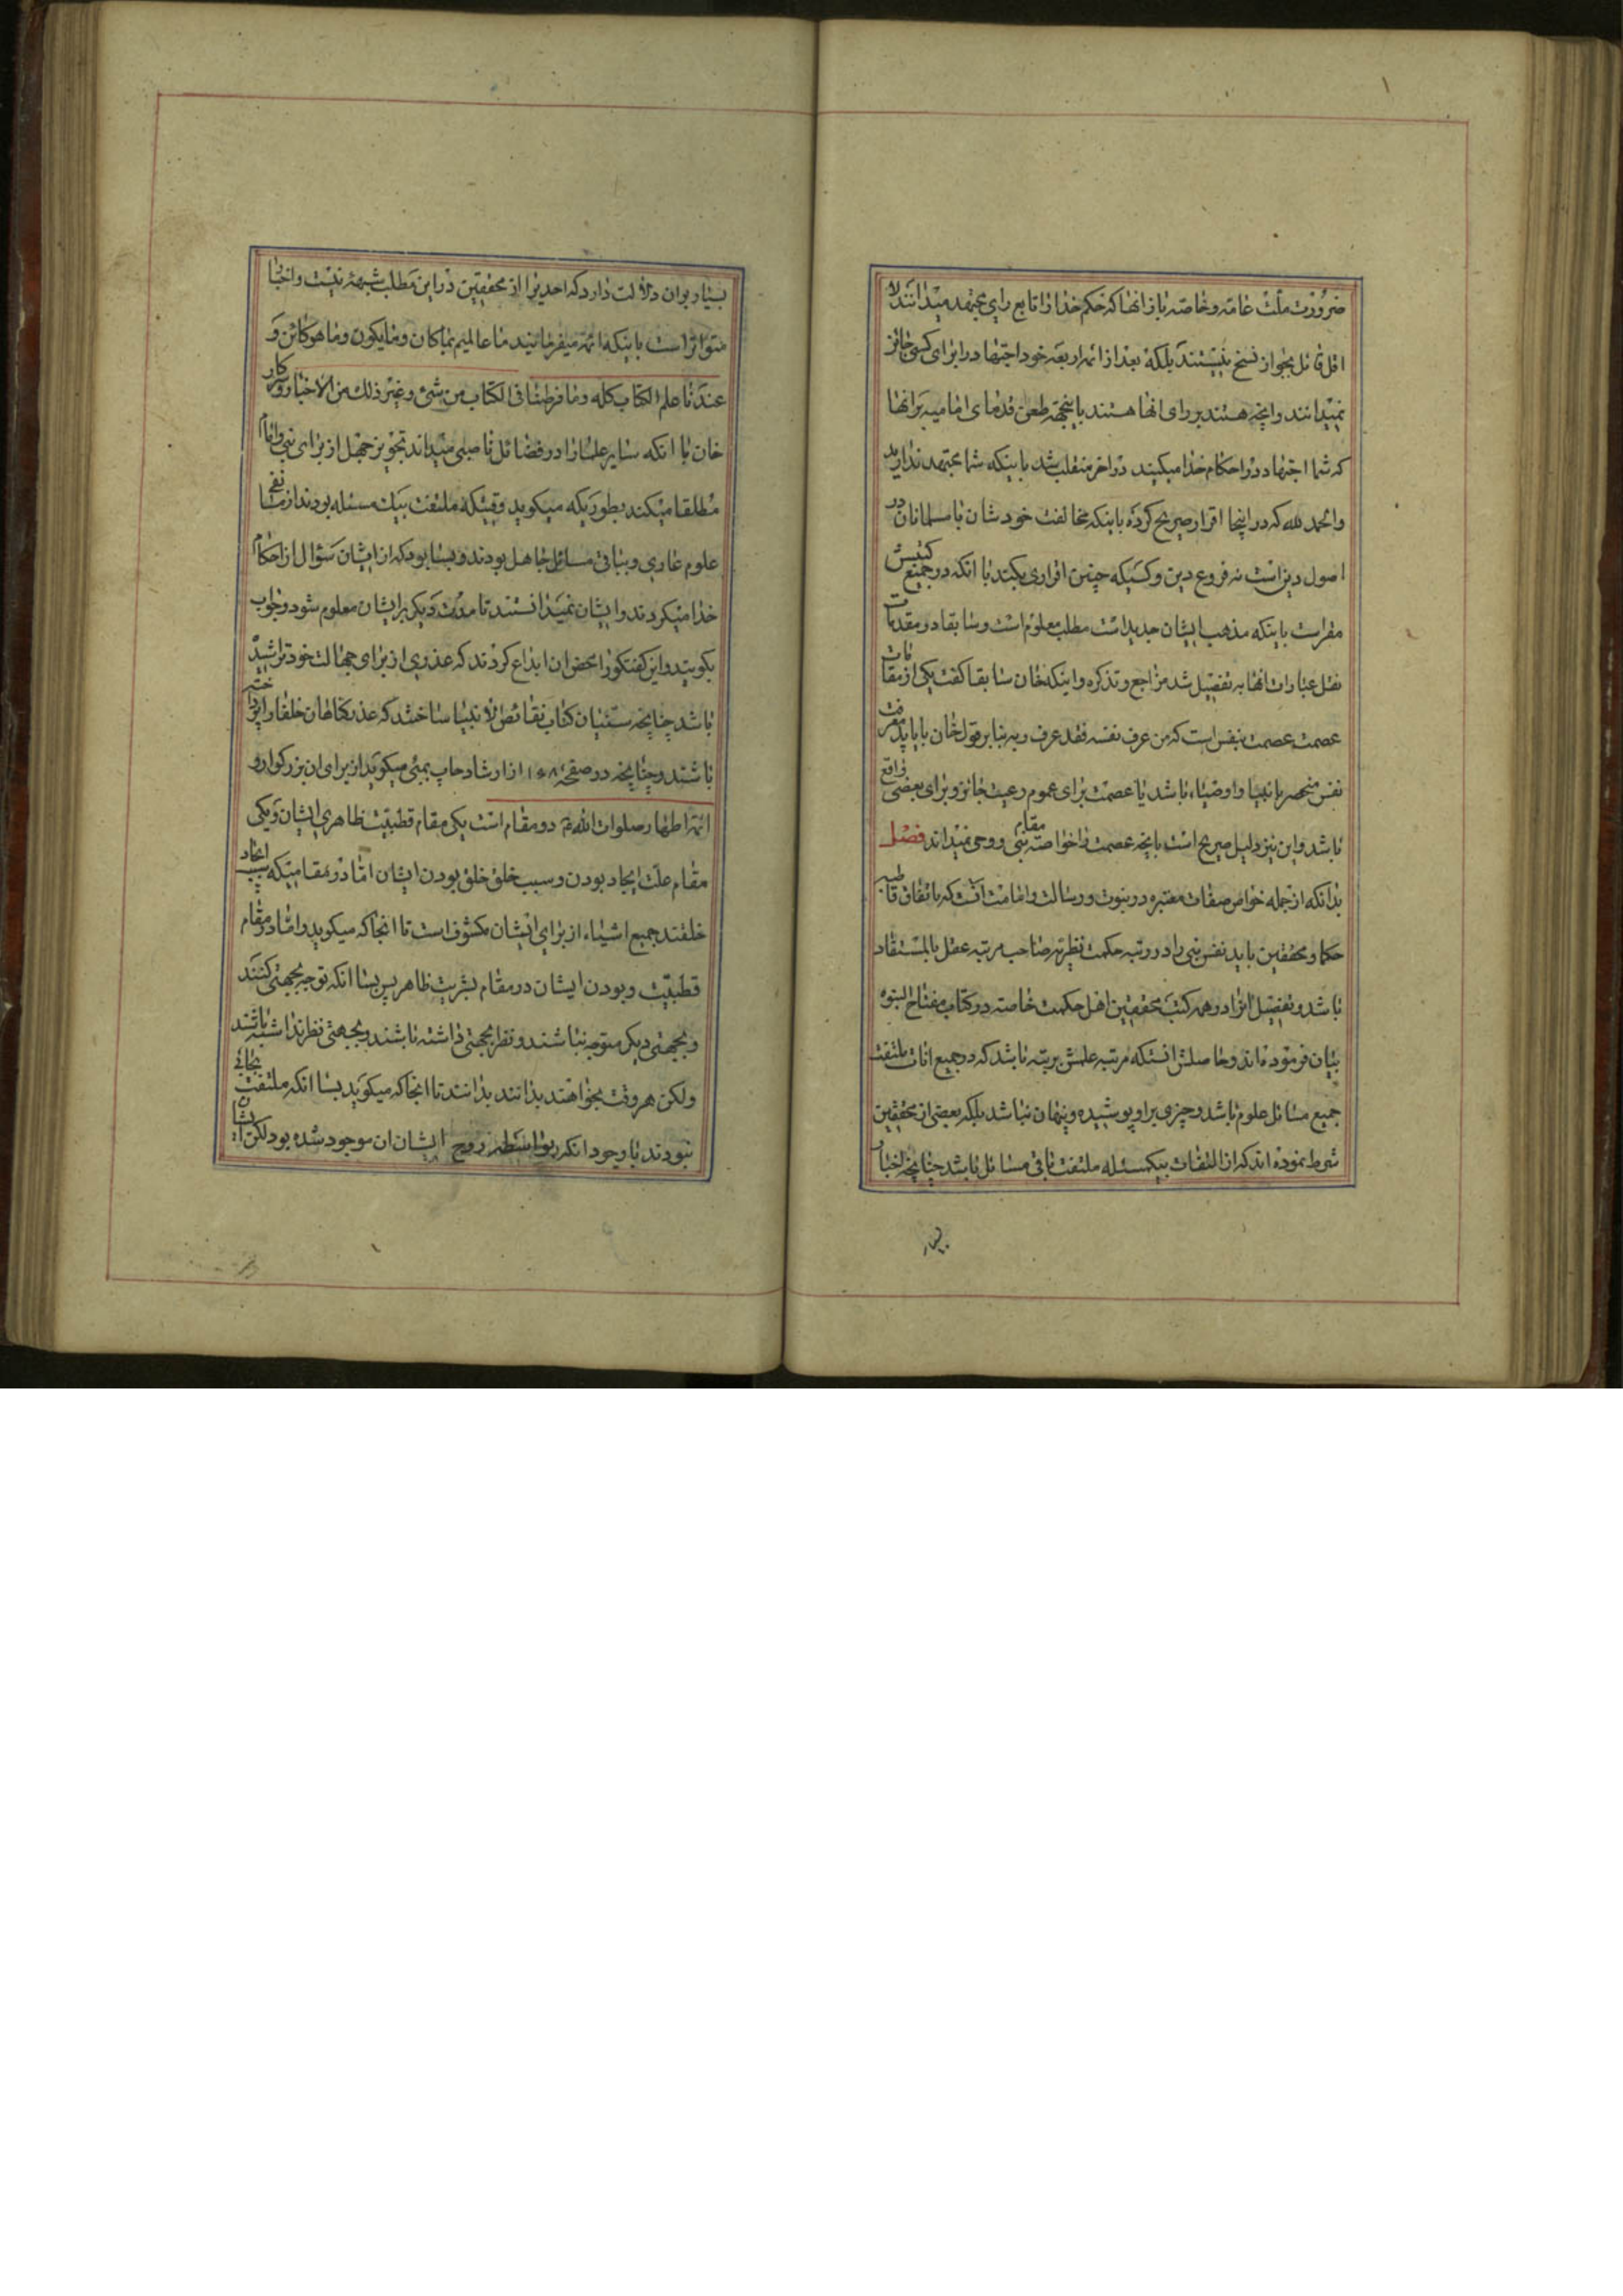 ضرورت ملت عامه و خاصه باز انها که حکم خدا را تابع رای مجتهد میدانند لا
اقل قائل بجواز نسخ نیستند بلکه بعد از ائمه اربعه خود اجتهاد را برای کسی جائز
نمیدانند و انچه هستند بر رای انها هستند باینجهة طعن قدمای امامیه بر انها
که شما اجتهاد در احکام خدا میکنید در اخر منقلب شد باینکه شما مجتهد ندارید
والحمد لله که در اینجا اقرار صریح کرده باینکه مخالفت خودشان با مسلمانان در
اصول دین است نه فروع دین و کسیکه چنین اقراری بکند با انکه در جمیع کتبش
مقر است باینکه مذهب ایشان جدید است مطلب معلوم است و سابقا در مقدمات
نقل عبارات انها به تفصیل شد مراجع و تذکره و اینکه خان سابقا کفت یکی از مقامات
عصمت عصمت نفس است که من عرف نفسه فقد عرف ربه بنابر قول خان باید معرفت
نفس منحصر بانبیا و اوصیاء باشد یا عصمت برای عموم رعیت جائز و برای بعضی واقع
باشد و این نیز دلیل صریح است بانچه عصمت را خواصه مقام نبی و وحی نمیداند فصل
بدانکه از جمله خواص صفات معتبره در نبوت و رسالت و امامت انست که باتفاق قاطبه
حکما و محققین باید نفس نبی را در رتبه حکمت نظریه صاحب مرتبه عقل بالمستفاد
باشد و تفصیل انرا در همه کتب محققین اهل حکمت خاصه در کتاب مفتاح النبوه
بیان فرموده اند و حاصلش انستکه مرتبه علمش بر تبه باشد که در جمیع انات ملتفت
جمیع مسائل علوم باشد و چیزی بر او پوشیده و پنهان نباشد بلکه بعضی از محققین
شرط نموده اند که از التفات بیکمسئله ملتفت باقی مسائل باشد چنانچه اخبار
بسیار بران دلالت دارد که احدیرا از محققین در این مطلب شبهه نیست و اخبار
متواتر است باینکه ائمه میفرمایند ما عالمیم بما کان و ما یکون و ما هو کائن و
عندنا علم الکتاب کله و ما فرطنا فی الکتاب من شئ و غیر ذلک من الاخبار و
خان با انکه سایر علما را در فضائل ناصبی میداند تجویز جهل از برای نبی و امام
مطلقا میکند بطوریکه میکوید وقتیکه ملتفت بیک مسئله بودند از
علوم عاری و بباقی مسائل جاهل بودند و بسا بود که از ایشان سؤال از احکام
خدا میکردند و ایشان نمیدانستند تا مدت دیکر بر ایشان معلوم شود و جواب
بکویند و این کفتکو را محض ان ابداع کردند که عذری از برای جهالت خود تراشیده
باشد چنانچه سنیان کتاب نقائص الانبیا ساختند که عذر کناهان خلفا را
باشند و چنانچه در صفحه ۱۰۸ از ارشاد چاپ بمبئی میکوید از برای ان بزرکوار و
ائمه اطهار صلوات الله دو مقام است یکی مقام قطبیت ظاهری ایشان و یکی
مقام علت ایجاد بودن و سبب خلق خلق بودن ایشان اما در مقامیکه سبب ایجاد
خلقند جمیع اشیاء از برای ایشان مکشوف است تا انجا که میکوید و اما در مقام
قطبیت و بودن ایشان در مقام بشریت ظاهر پس بسا انکه توجه بجهتی کنند
و بجهتی دیکر متوجه نباشند و نظر بجهتی داشته باشند و بجهتی نظر نداشته باشند
ولکن هر وقت بخواهند بدانند بدانند تا انجا که میکوید بسا انکه ملتفت بجائی
نبودند با وجود انکه بواسطه روح ایشان ان موجود شده بود لکن ایشان